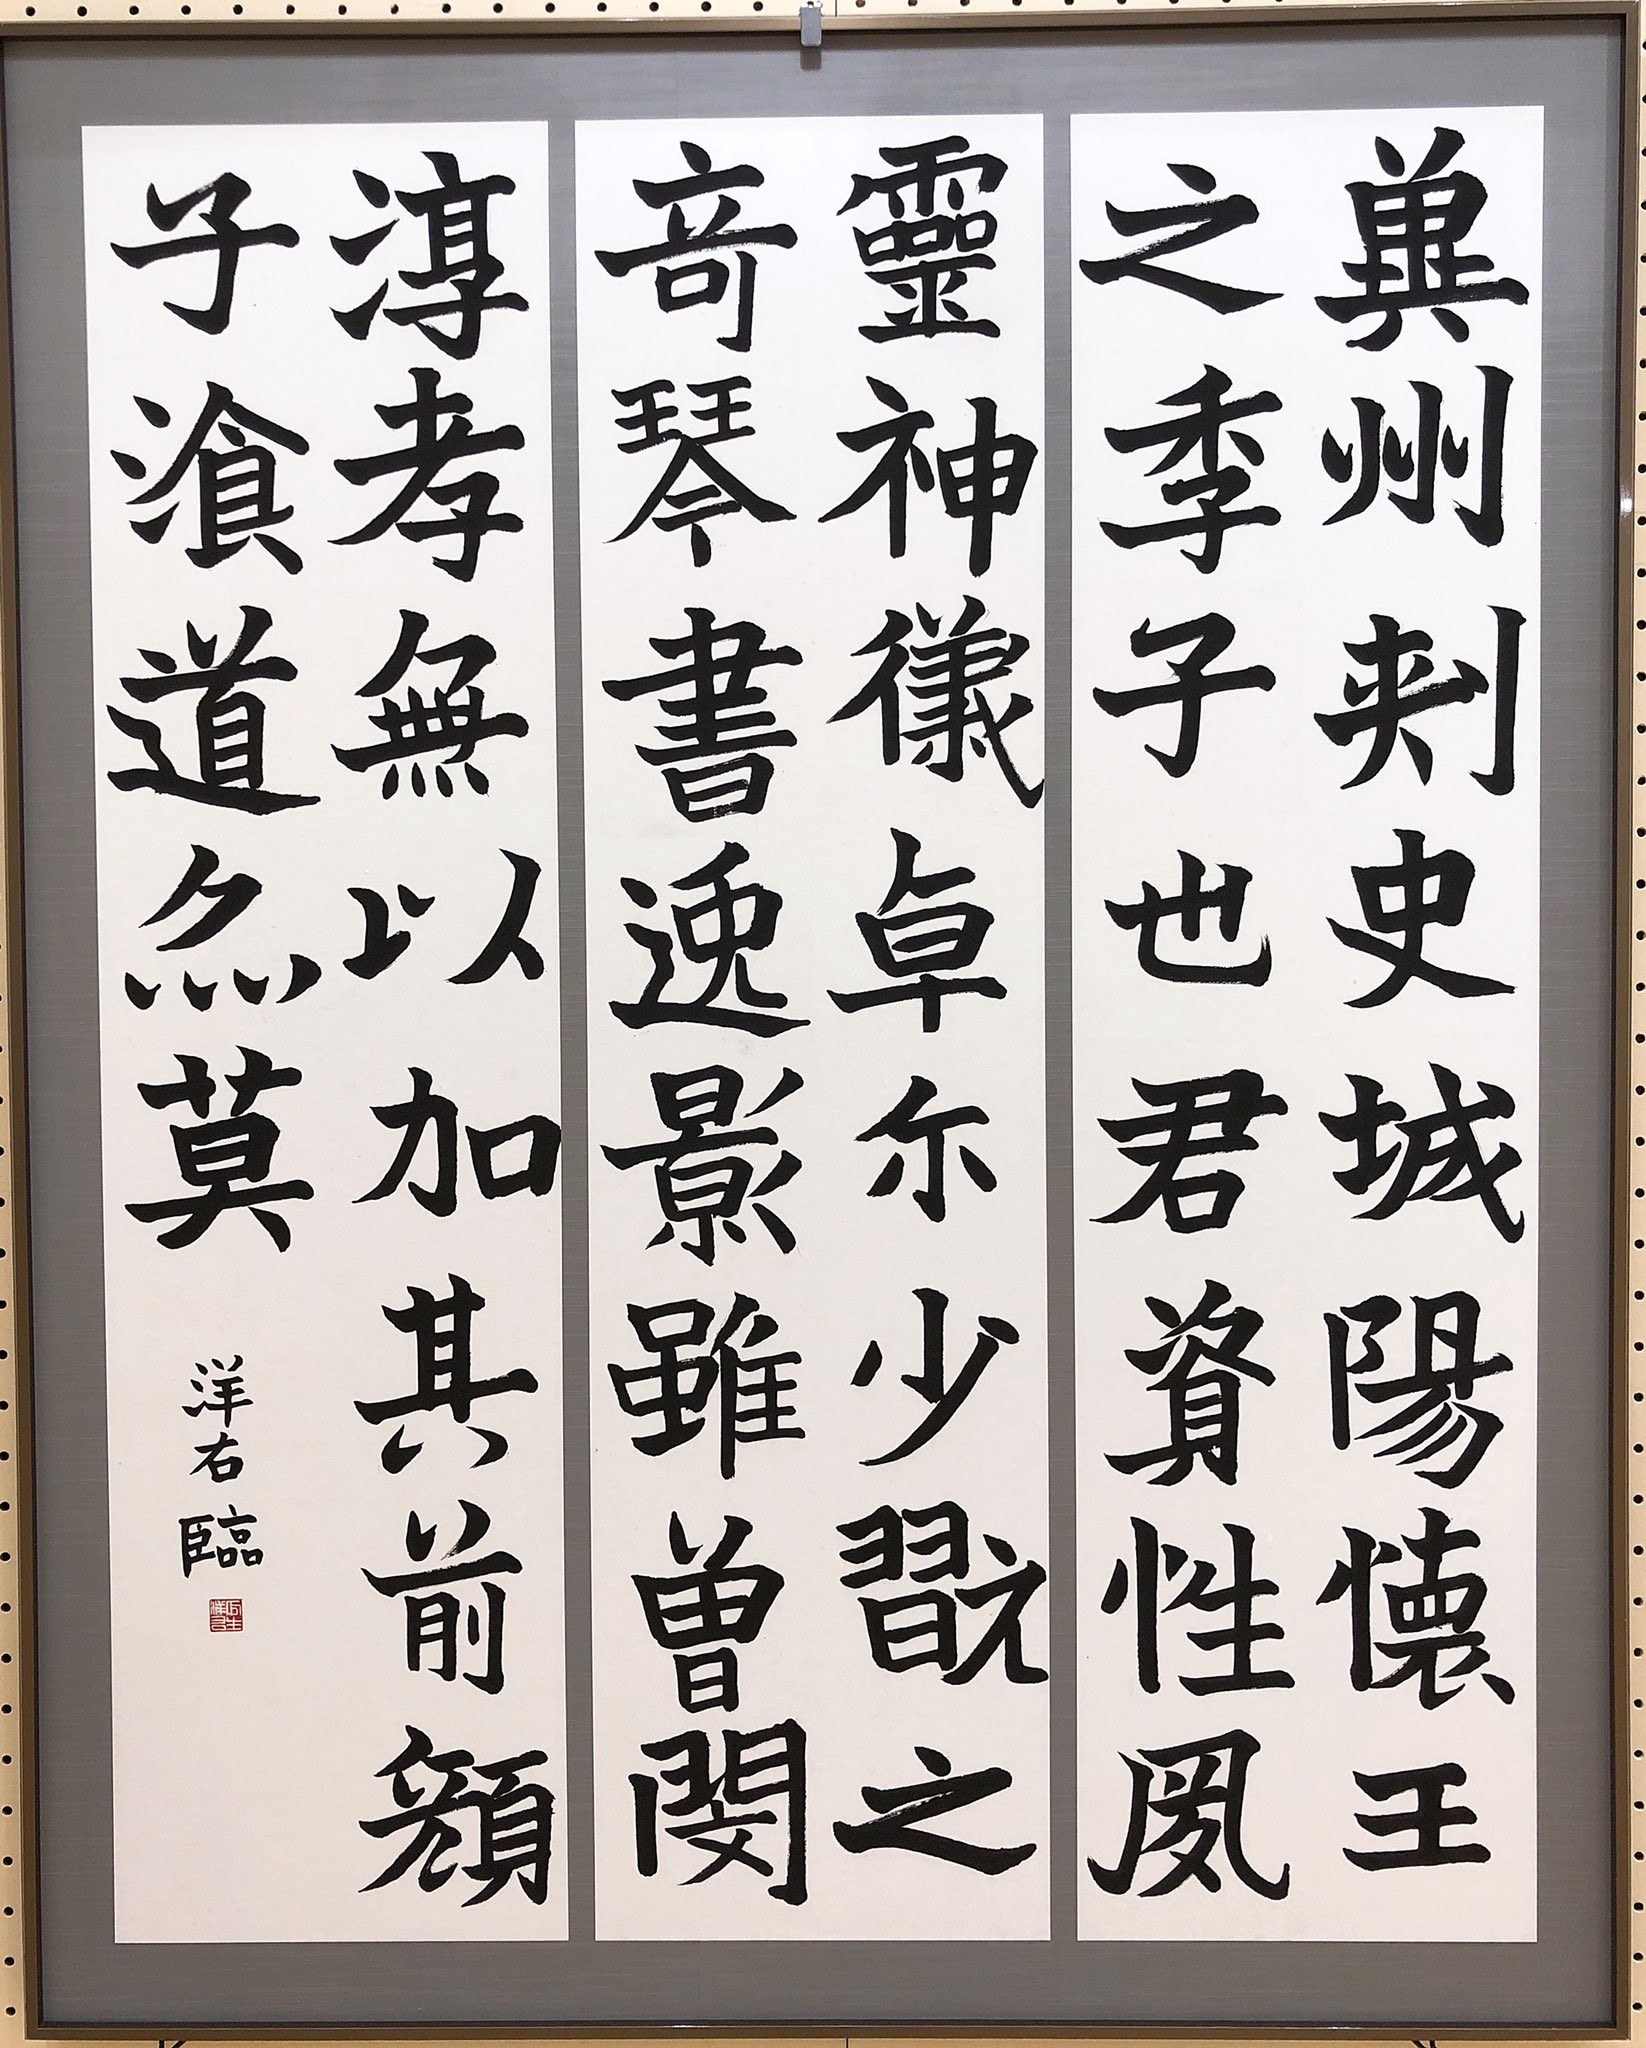 冀州刺史城陽懐王
之季子也君資性夙
靈神儀卓尓少翫之
奇琴書逸影雖曽閔
淳孝無以加其前顔
子湌道亦莫
洋右臨